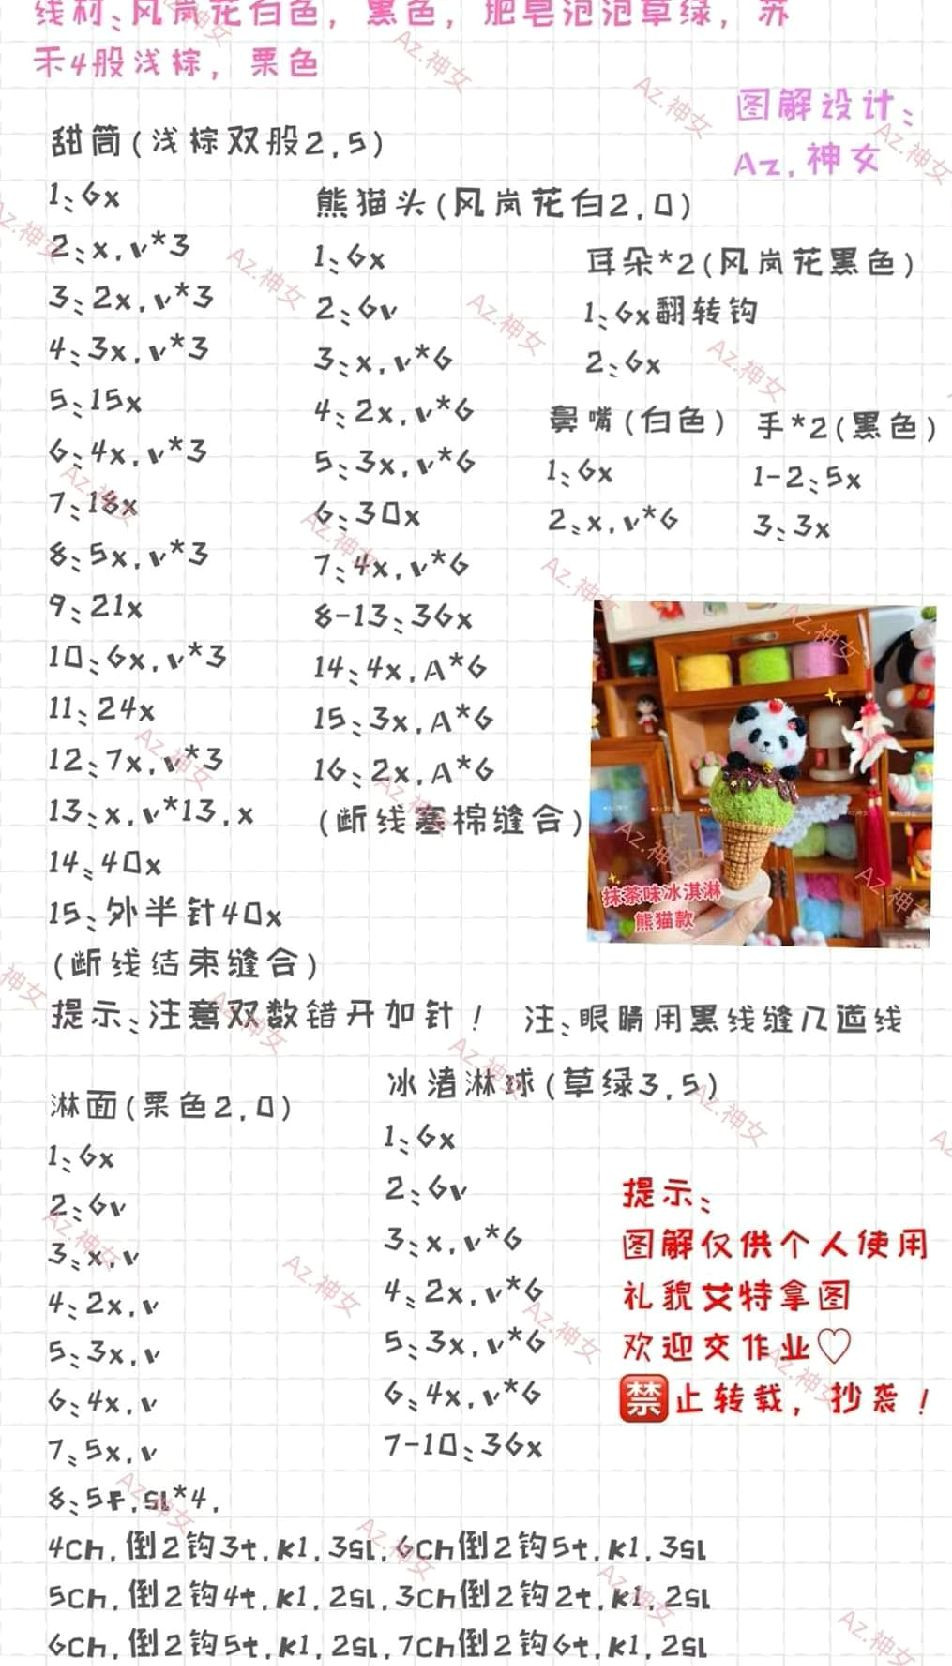 线材:风岚花白色，黑色，肥皂泡泡草绿，苏
禾4股浅棕，栗色
图解设计:
Az.神女
甜筒(浅棕双股2.5)
1:6x
2:x.v*3
3:2x.v*3
4:3x.v*3
5:15x
6:4x.v*3
7:18x
8:5x.v*3
9:21x
10:6x.v*3
11:24x
12:7x.v*3
13:x.v*13.x
14:40x
15:外半针40x
(断线结束缝合)
提示:注意双数错开加针！
熊猫头(风岚花白2.0)
1:6x
2:6v
3:x.v*6
4:2x.v*6
5:3x.v*6
6:30x
7:4x.v*6
8-13:36x
14:4x.A*6
15:3x.A*6
16:2x.A*6
(断线塞棉缝合)
耳朵*2(风岚花黑色)
1:6x翻转钩
2:6x
鼻嘴(白色)
1:6x
2:x.v*6
手*2(黑色)
1-2:5x
3:3x
抹茶味冰淇淋
熊猫款
注:眼睛用黑线缝几道线
淋面(栗色2.0)
1:6x
2:6v
3:x.v
4:2x.v
5:3x.v
6:4x.v
7:5x.v
8:5F.SL*4.
4Ch.倒2钩3t.K1.3SL.6Ch倒2钩5t.K1.3SL
5Ch.倒2钩4t.K1.2SL.3Ch倒2钩2t.K1.2SL
6Ch.倒2钩5t.K1.2SL.7Ch倒2钩6t.K1.2SL
冰渚淋球(草绿3.5)
1:6x
2:6v
3:x.v*6
4:2x.v*6
5:3x.v*6
6:4x.v*6
7-10:36x
提示:
图解仅供个人使用
礼貌艾特拿图
欢迎交作业♡
禁止转载，抄袭！
Az.神女